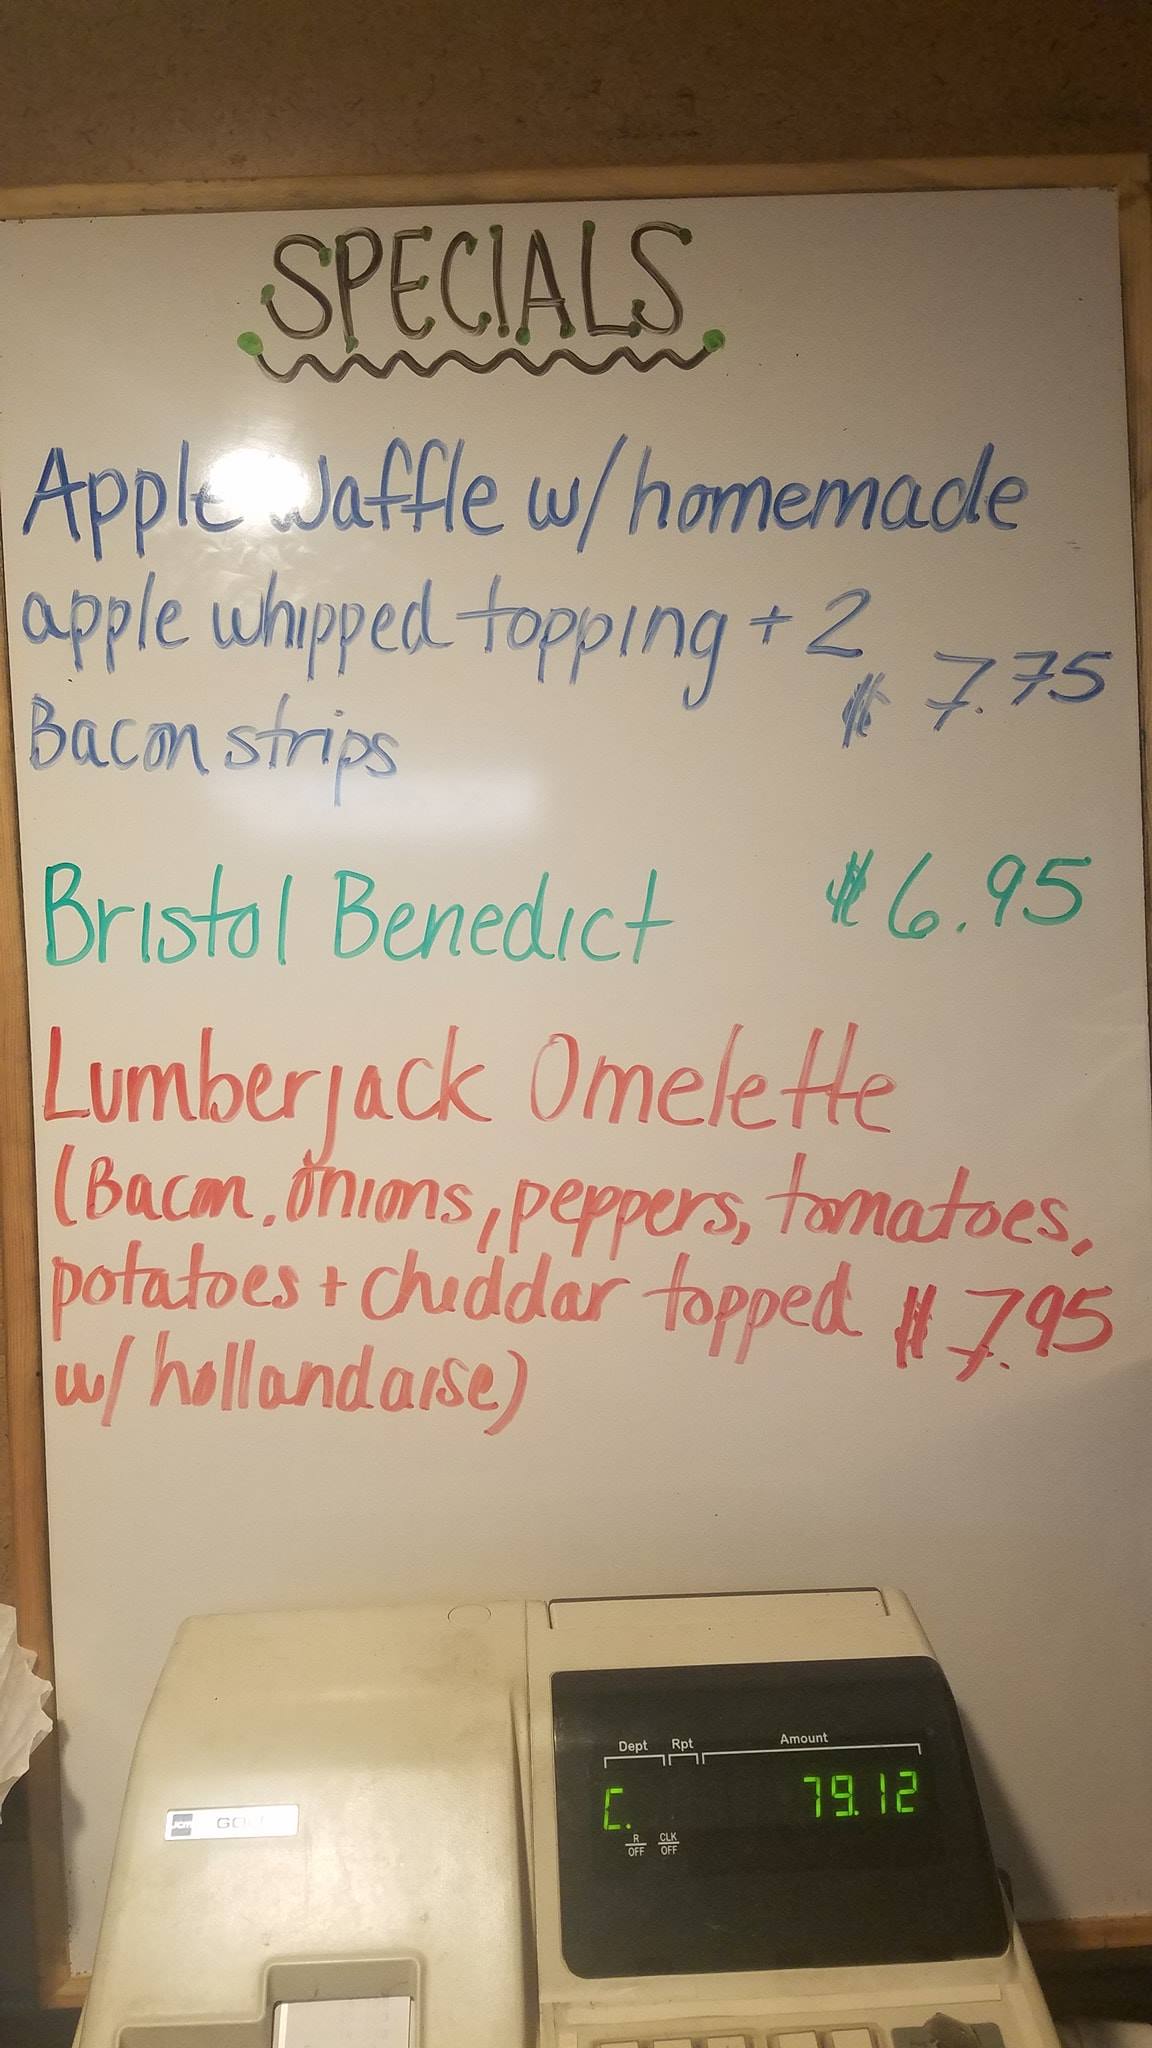 SPECIALS
Apple Waffle w/ homemade
apple whipped topping + 2
Bacon strips $7.75
Bristol Benedict $6.95
Lumberjack Omelette
(Bacon, onions, peppers, tomatoes,
potatoes + cheddar topped $7.95
w/ hollandaise)
Dept Rpt Amount
C. 79.12
R OFF CLK OFF
JCM